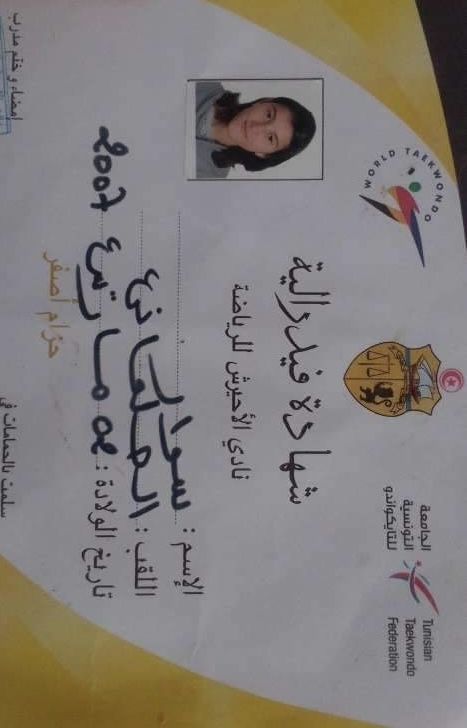 WORLD TAEKWONDO
الجامعة
التونسية
للتايكواندو
Tunisian
Taekwondo
Federation
شهادة فيدرالية
نادي الأحيرش للرياضة
الإسم :
اللقب :
تاريخ الولادة : مارس 2007
حزام أصفر
سلمت بالحمامات في
إمضاء و ختم مدرب